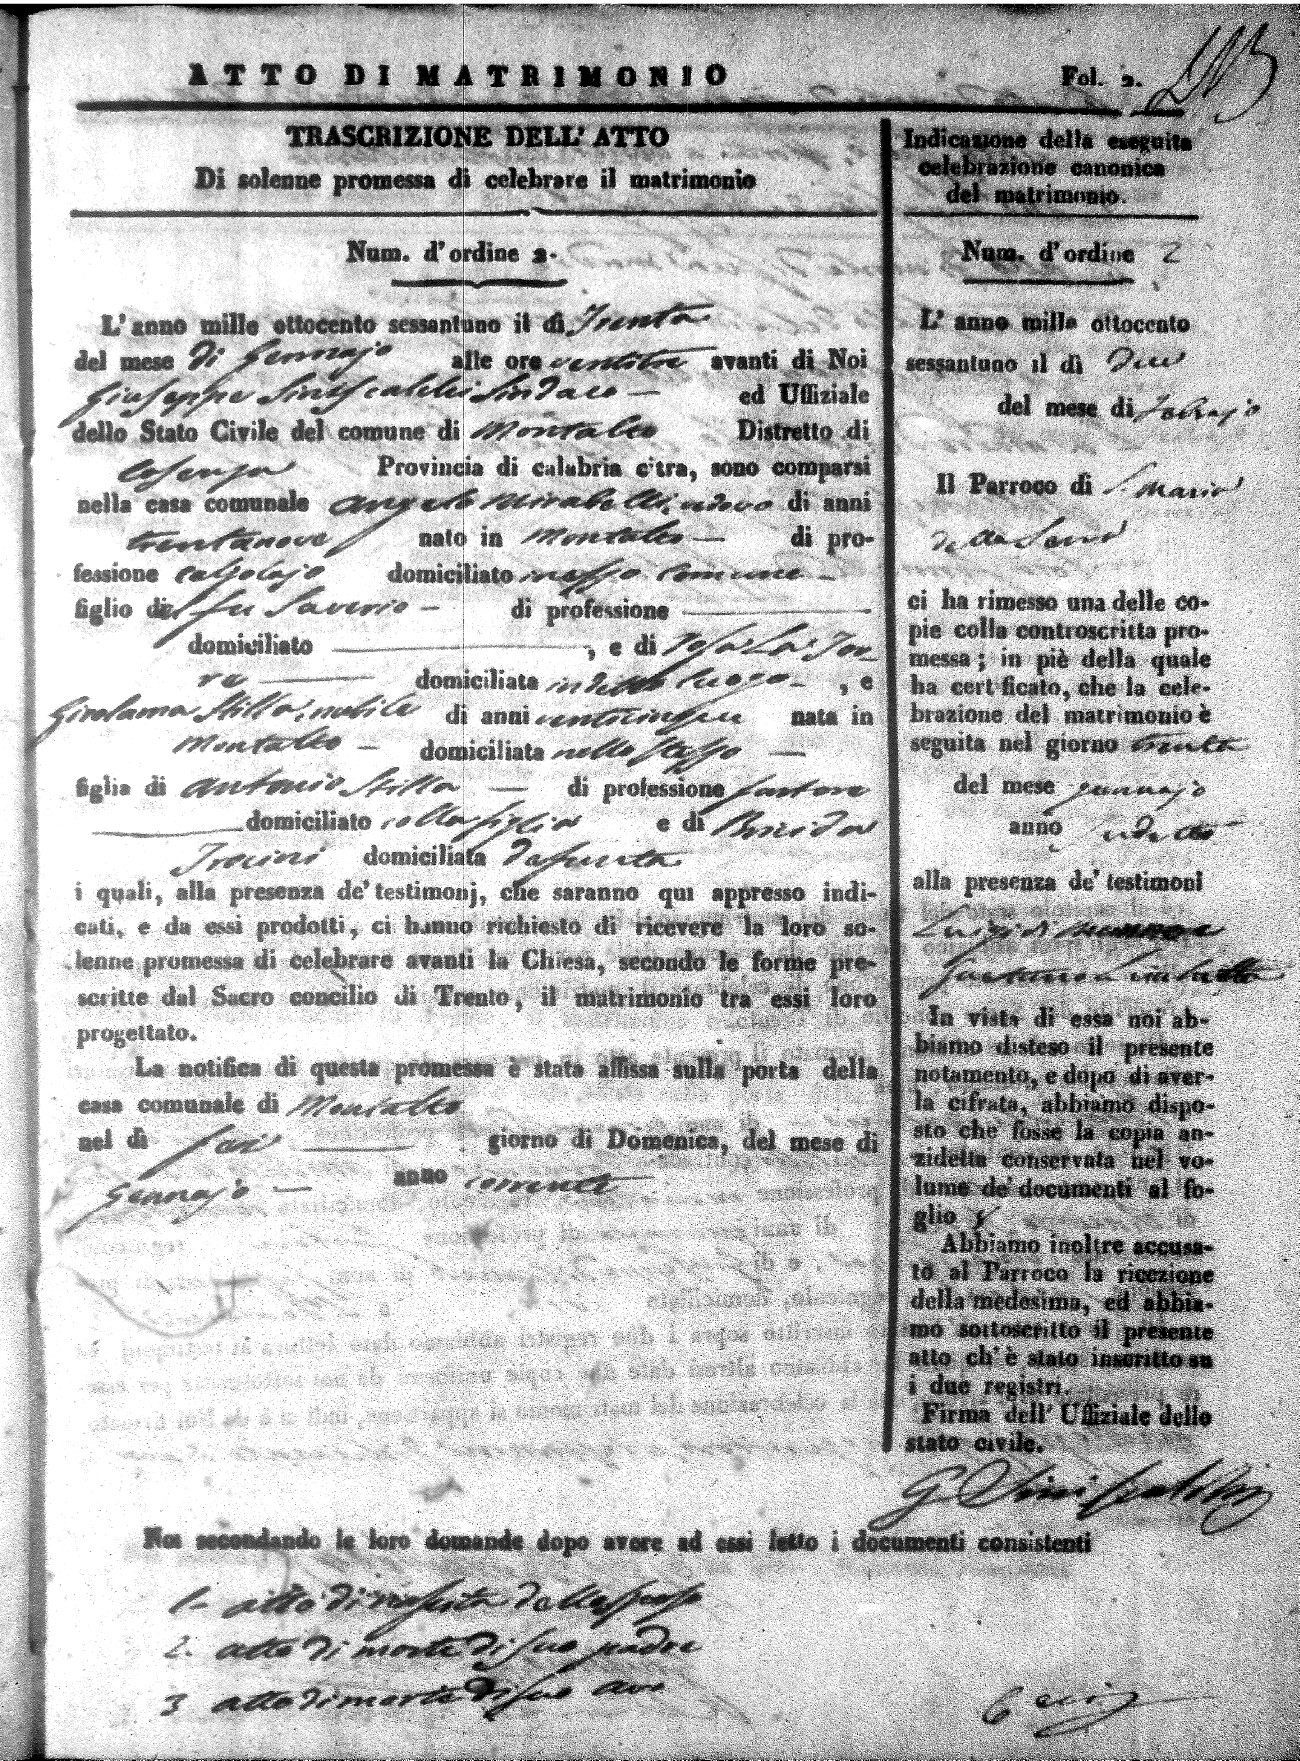 ATTO DI MATRIMONIO
Fol. 2.
TRASCRIZIONE DELL' ATTO
Di solenne promessa di celebrare il matrimonio
Num. d' ordine 2.
L' anno mille ottocento sessantuno il dì Trenta
del mese di Gennajo alle ore ventitre avanti di Noi
Giuseppe Siniscalchi Sindaco — ed Uffiziale
dello Stato Civile del comune di Montalto Distretto di
Cosenza Provincia di calabria citra, sono comparsi
nella casa comunale Angelo Mirabelli, vedovo di anni
trentanove nato in Montalto — di pro-
fessione calzolajo domiciliato in esso comune —
figlio del fu Saverio — di professione —
domiciliato — , e di Rosa La Tor-
re — domiciliata in detto luogo — , e
Girolama Stilla, nubile di anni venticinque nata in
Montalto — domiciliata nello stesso —
figlia di Antonio Stilla — di professione
— domiciliato colla figlia e di Brigida
domiciliata defunta
i quali, alla presenza de' testimonj, che saranno qui appresso indi-
cati, e da essi prodotti, ci hanno richiesto di ricevere la loro so-
lenne promessa di celebrare avanti la Chiesa, secondo le forme pre-
scritte dal Sacro concilio di Trento, il matrimonio tra essi loro
progettato.
La notifica di questa promessa è stata affissa sulla porta della
casa comunale di Montalto
nel dì sei — giorno di Domenica, del mese di
Gennajo — anno corrente
Indicazione della eseguita
celebrazione canonica
del matrimonio.
Num. d' ordine 2
L' anno mille ottocento
sessantuno il dì due
del mese di Febrajo
Il Parroco di S. Maria
della Serra
ci ha rimesso una delle co-
pie colla controscritta pro-
messa; in piè della quale
ha certificato, che la cele-
brazione del matrimonio è
seguita nel giorno trenta
del mese gennajo
anno sudetto
alla presenza de' testimoni
Luigi di
Gaetano
In vista di essa noi ab-
biamo disteso il presente
notamento, e dopo di aver-
la cifrata, abbiamo dispo-
sto che fosse la copia an-
zidetta conservata nel vo-
lume de' documenti al fo-
glio
Abbiamo inoltre accusa-
to al Parroco la ricezione
della medesima, ed abbia-
mo sottoscritto il presente
atto ch' è stato inscritto su
i due registri.
Firma dell' Uffiziale dello
stato civile.
G Siniscalchi
Noi secondando le loro domande dopo avere ad essi letto i documenti consistenti
1. atto di nascita dello sposo
2. atto di morte di suo padre
3 atto di morte di suo avo